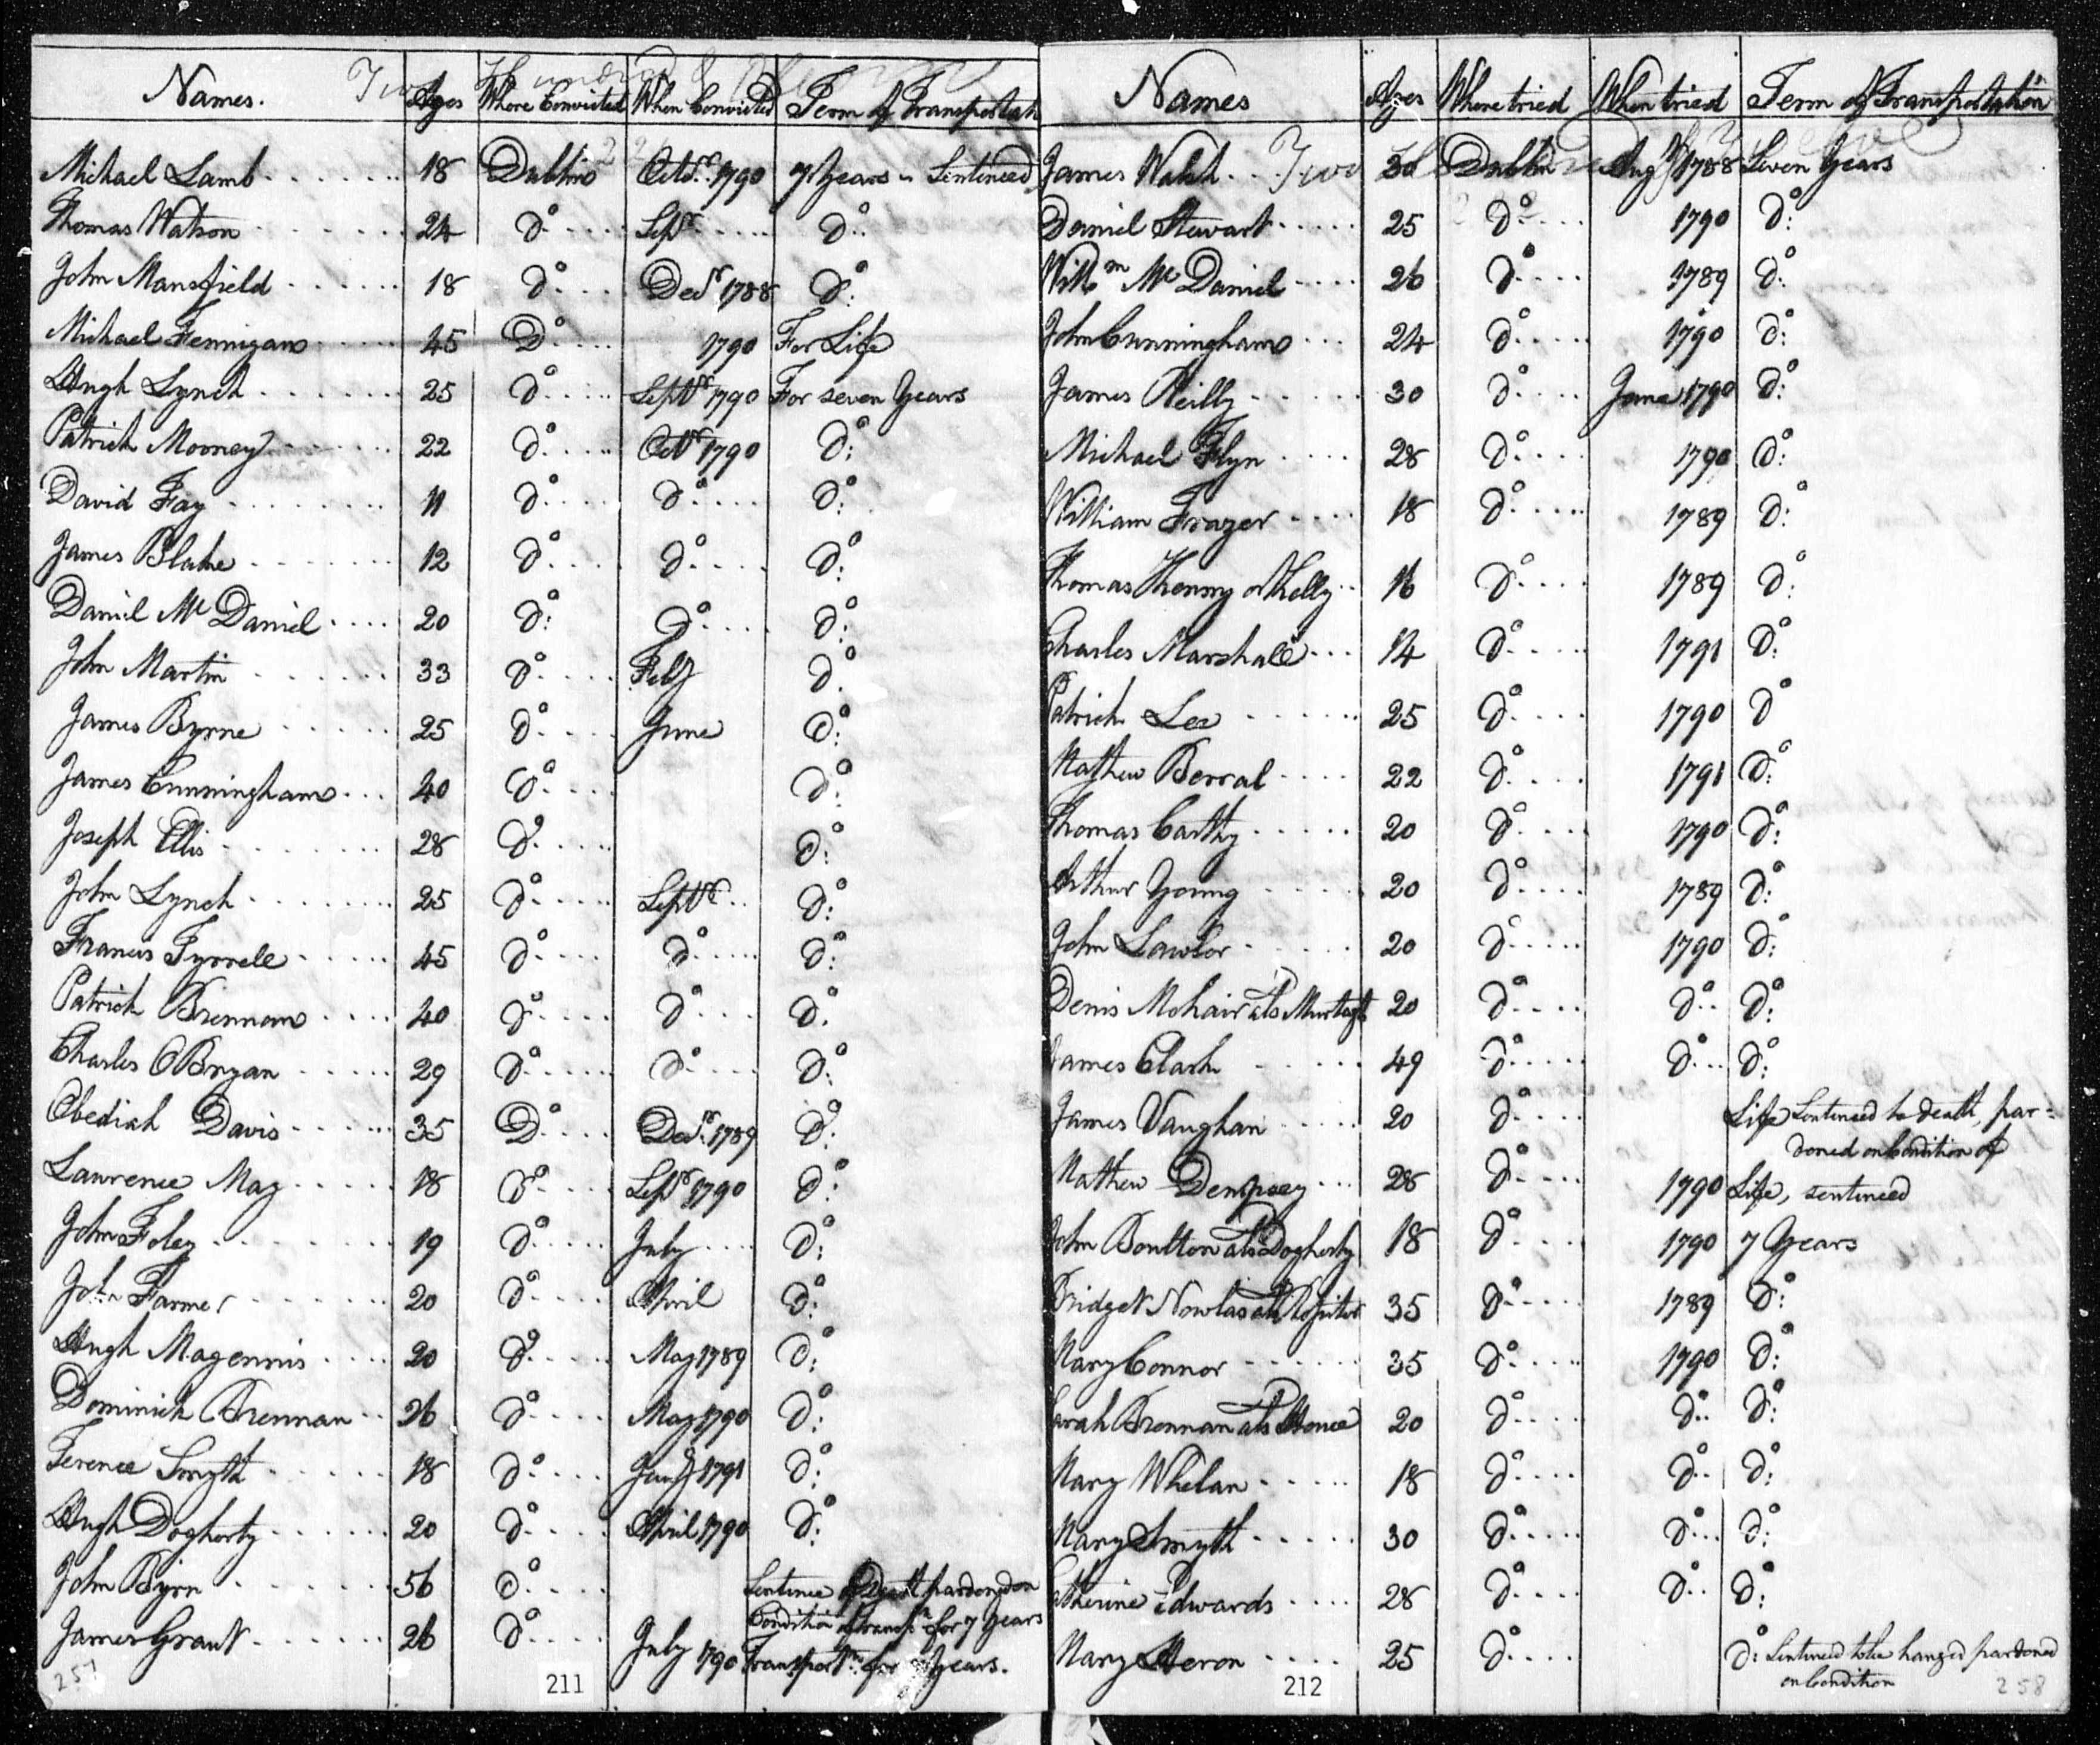 Names. Ages Where Convicted When Convicted Term of Transportatn
Michael Lamb 18 Dublin Octr. 1790 7 Years - Sentenced
Thomas Watson 24 Do Sepr Do
John Mansfield 18 Do Decr 1788 Do
Michael Fennigan 45 Do 1790 For Life
Hugh Lynch 25 Do Septr 1790 For seven Years
Patrick Mooney 22 Do Octr 1790 Do
David Fay 11 Do Do Do
James Blake 12 Do Do Do
Daniel Mc Daniel 20 Do Do Do
John Martin 33 Do Feby Do
James Byrne 25 Do June Do
James Cunningham 40 Do Do
Joseph Ellis 28 Do Do
John Lynch 25 Do Septr Do
Francis Tyrrell 45 Do Do Do
Patrick Brennan 40 Do Do Do
Charles OBryan 29 Do Do Do
Obediah Davis 35 Do Decr. 1789 Do
Lawrence May 18 Do Sepr 1790 Do
John Foley 19 Do July Do
John Farmer 20 Do April Do
Hugh Magennis 20 Do May 1789 Do
Dominick Brennan 26 Do May 1790 Do
Terence Smyth 18 Do Jany 1791 Do
Hugh Dogherty 20 Do April 1790 Do
John Byrn 56 Do Sentence of Death pardoned on
Condition of transpn for 7 Years
James Grant 26 Do July 1790 Transportn for 7 Years.
257
211
Names Ages Where tried When tried Term of Transportation
James Walsh 30 Dublin Aug 1788 Seven Years
Daniel Stewart 25 Do 1790 Do
Willm Mc Daniel 26 Do 1789 Do
John Cunningham 24 Do 1790 Do
James Reilly 30 Do June 1790 Do
Michael Flyn 28 Do 1790 Do
William Frazer 18 Do 1789 Do
Thomas Kenny or Kelly 16 Do 1789 Do
Charles Marshall 14 Do 1791 Do
Patrick Lee 25 Do 1790 Do
Mathew Berral 22 Do 1791 Do
Thomas Carthy 20 Do 1790 Do
Arthur Young 20 Do 1789 Do
John Lawlor 20 Do 1790 Do
Denis Mohair als Murtagh 20 Do Do Do
James Clark 49 Do Do Do
James Vaughan 20 Do Life Sentenced to death, par-
doned on Condition of
Mathew Dempsey 28 Do 1790 Life, sentenced
John Boulton als Dogherty 18 Do 1790 7 Years
Bridget Nowlan als 35 Do 1789 Do
Mary Connor 35 Do 1790 Do
Sarah Brennan als 20 Do Do Do
Mary Whelan 18 Do Do Do
Mary Smyth 30 Do Do Do
Catherine Edwards 28 Do Do Do
Mary Heron 25 Do Do: Sentenced to be hanged pardoned
on Condition
212
258